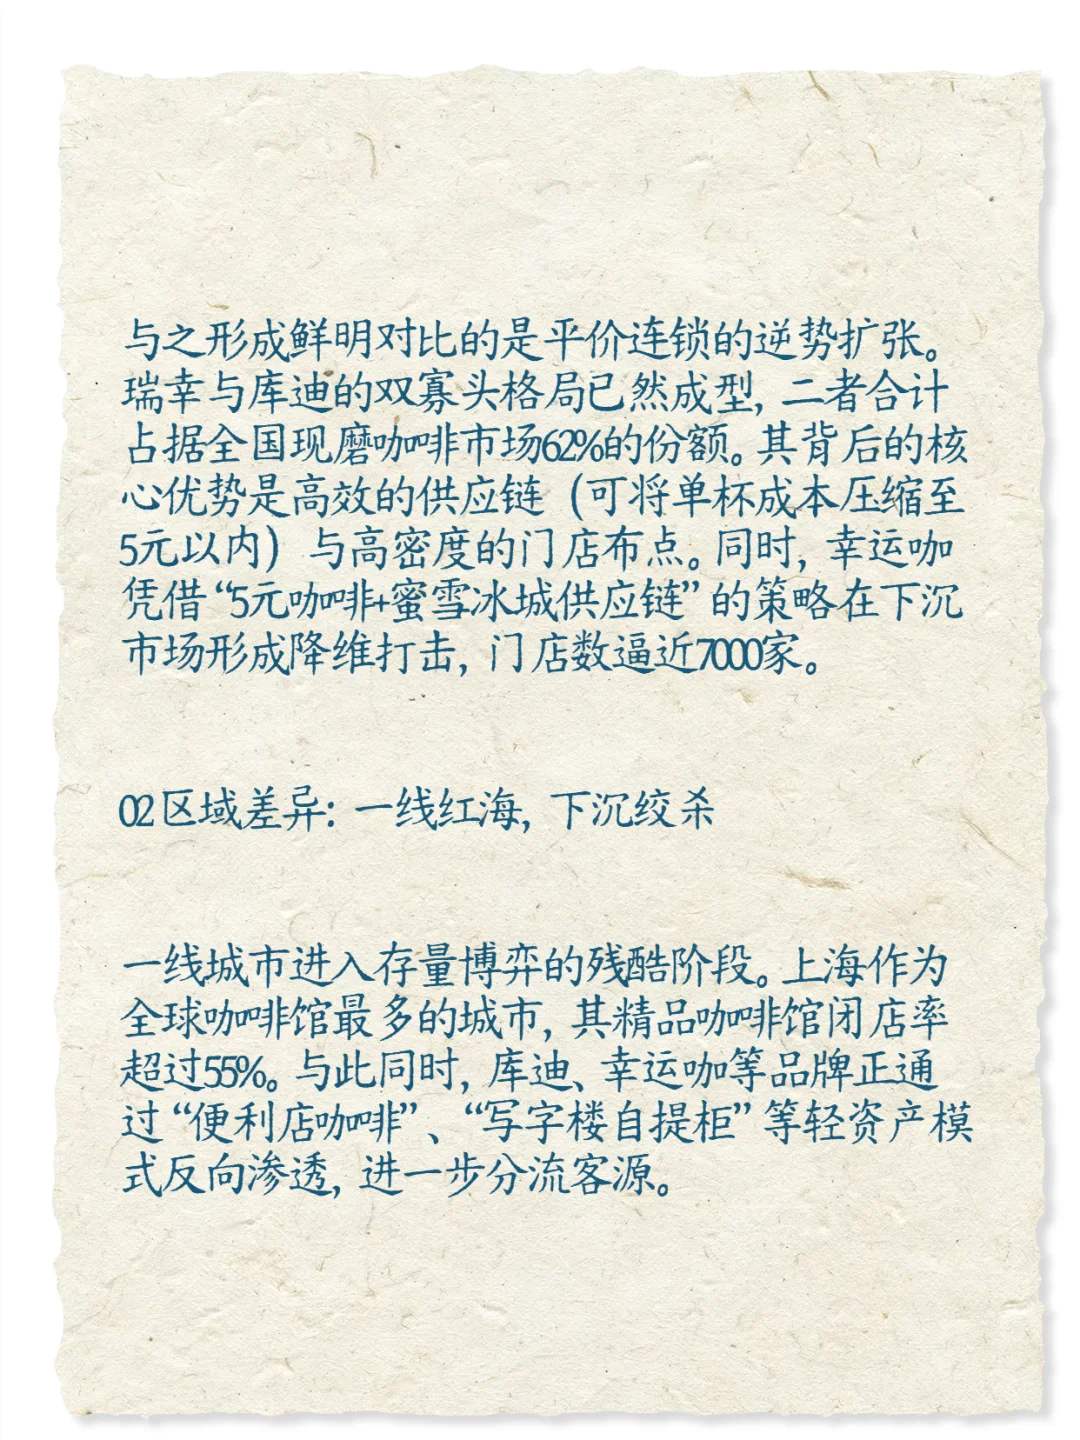 与之形成鲜明对比的是平价连锁的逆势扩张。
瑞幸与库迪的双寡头格局已然成型，二者合计
占据全国现磨咖啡市场62%的份额。其背后的核
心优势是高效的供应链（可将单杯成本压缩至
5元以内）与高密度的门店布点。同时，幸运咖
凭借“5元咖啡+蜜雪冰城供应链”的策略在下沉
市场形成降维打击，门店数逼近7000家。
02区域差异：一线红海，下沉绞杀
一线城市进入存量博弈的残酷阶段。上海作为
全球咖啡馆最多的城市，其精品咖啡馆闭店率
超过55%。与此同时，库迪、幸运咖等品牌正通
过“便利店咖啡”、“写字楼自提柜”等轻资产模
式反向渗透，进一步分流客源。